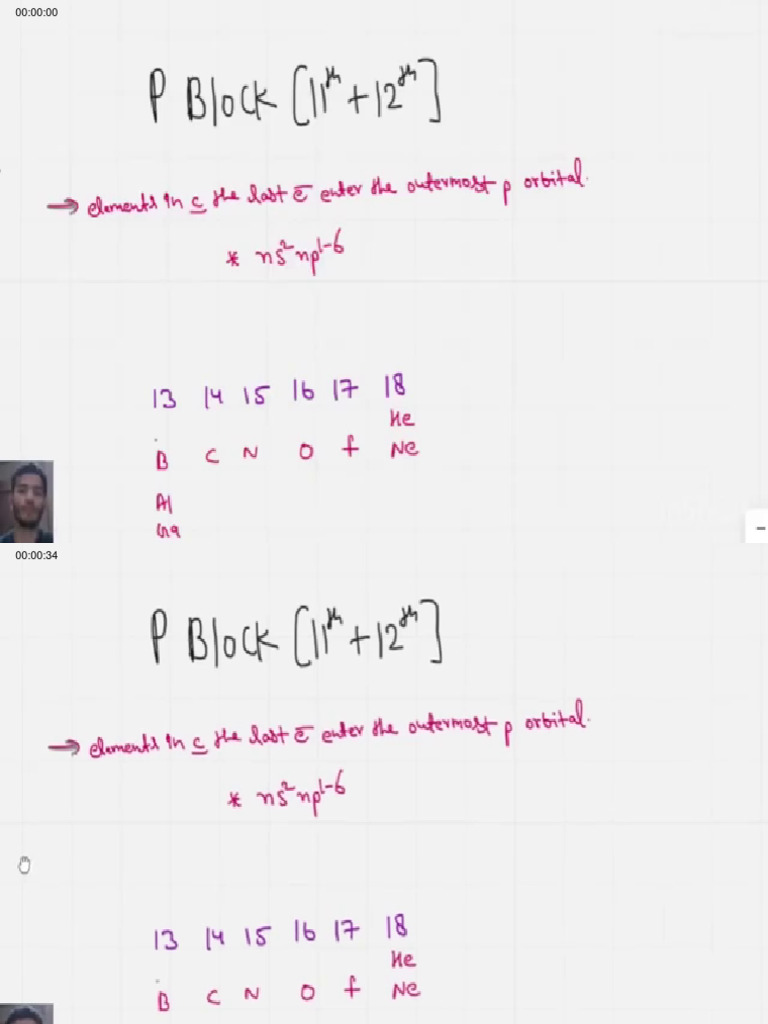 00:00:00
P Block [11th + 12th]
→ elements in c the last e̅ enter the outermost p orbital.
* ns²np¹⁻⁶
13 14 15 16 17 18
He
B C N O f Ne
Al
Ga
00:00:34
P Block [11th + 12th]
→ elements in c the last e̅ enter the outermost p orbital.
* ns²np¹⁻⁶
13 14 15 16 17 18
He
B C N O f Ne